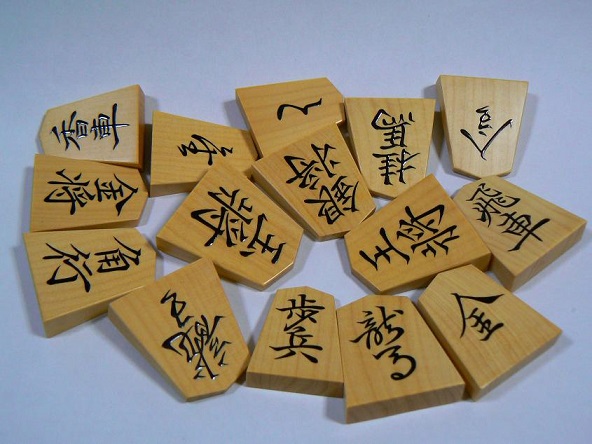 香車
と
桂馬
金将
玉将
銀将
王将
飛車
角行
龍王
歩兵
龍馬
全